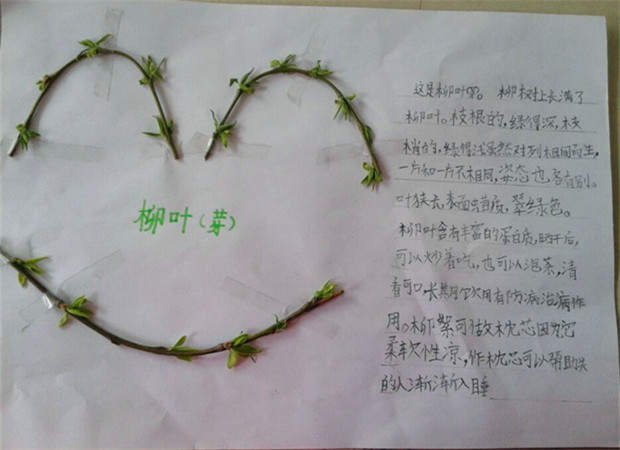 柳叶(芽)
这是柳叶芽。柳树上长满了
柳叶。枝根的,绿得深,枝
梢的,绿得浅虽然对列相间而生,
一片和一片不相同,姿态也各有别。
叶狭长,表面蜡质,翠绿色。
柳叶含有丰富的蛋白质,晒干后,
可以炒着吃,也可以泡茶,清
香可口,长期饮用有防病治病作
用。柳絮可做枕芯因为它
柔软性凉,作枕芯可以帮助失
的人渐渐入睡